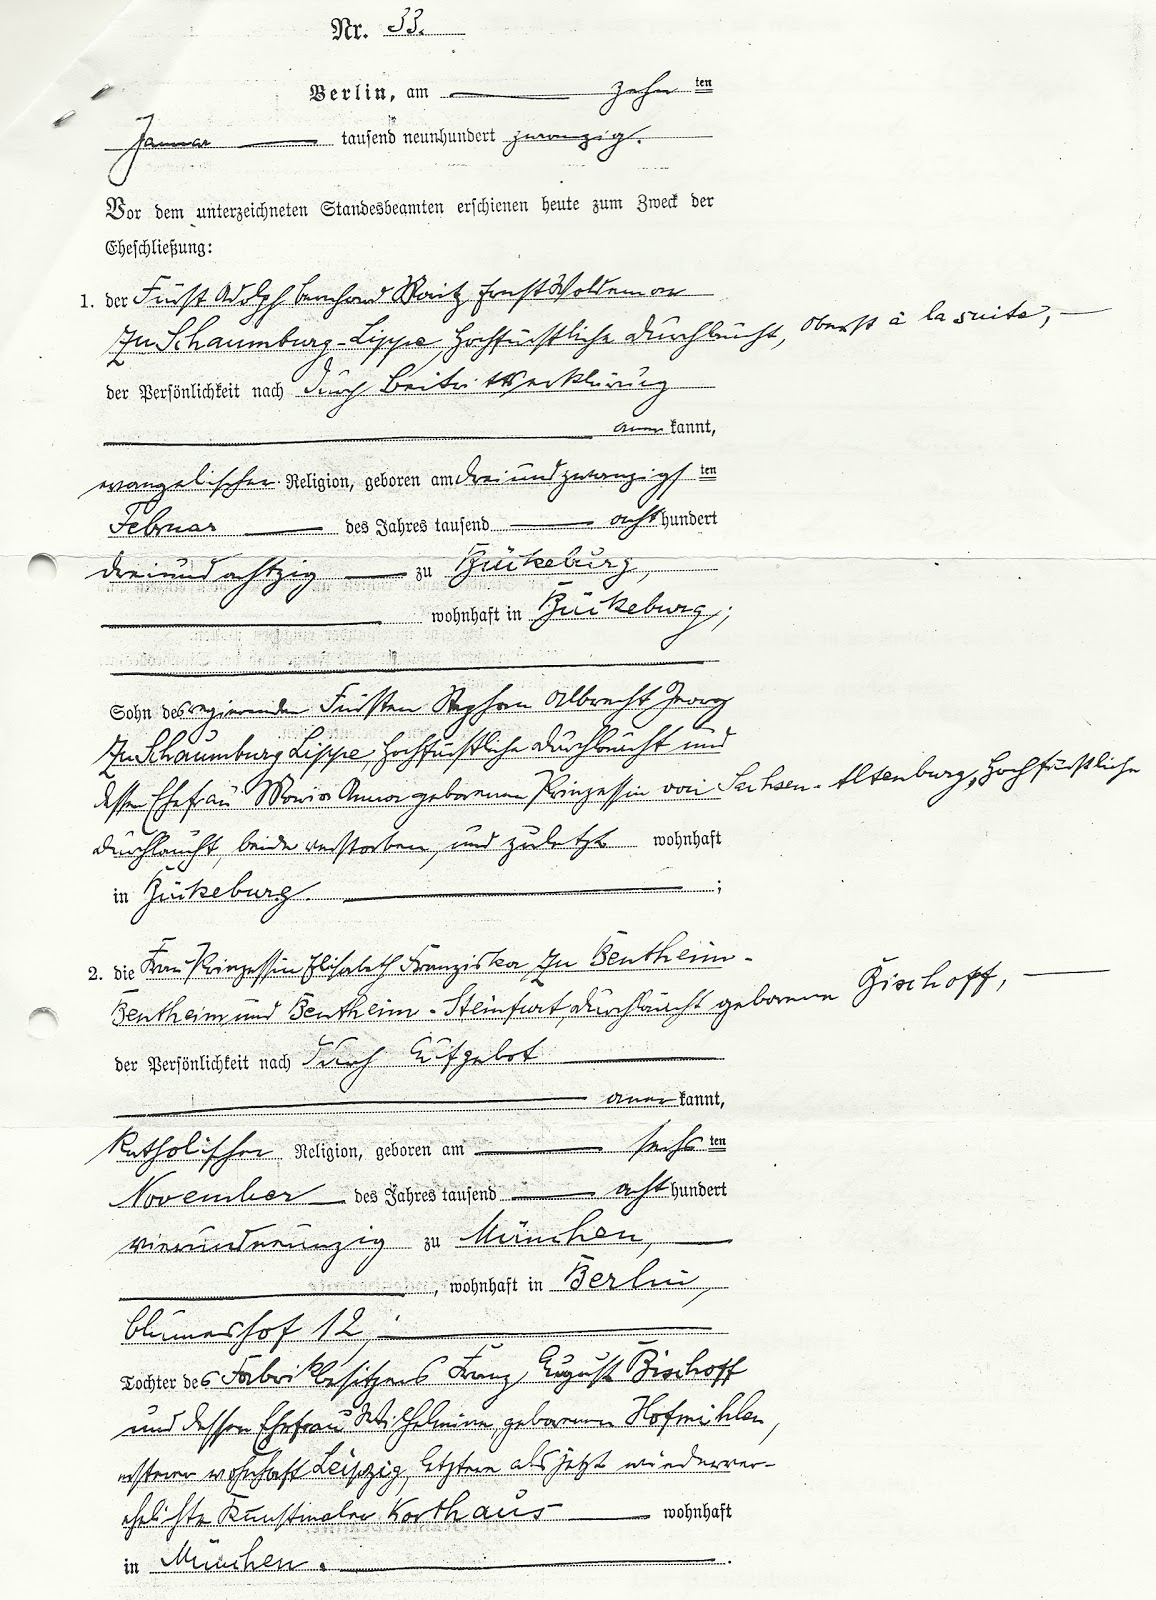 Nr. 33.
Berlin, am zehn ten
Januar tausend neunhundert zwanzig.
Vor dem unterzeichneten Standesbeamten erschienen heute zum Zweck der
Eheschließung:
1. der Fürst Adolph Bernhard Moritz Ernst Woldemar
zu Schaumburg-Lippe, Hochfürstliche Durchlaucht, Oberst à la suite,
der Persönlichkeit nach durch Beitrittserklärung
aner kannt,
evangelischer Religion, geboren am dreiundzwanzigs ten
Februar des Jahres tausend acht hundert
dreiundachtzig zu Bückeburg,
wohnhaft in Bückeburg;
Sohn des regierenden Fürsten Stephan Albrecht Georg
zu Schaumburg Lippe, Hochfürstliche Durchlaucht und
dessen Ehefrau Maria Anna geborenen Prinzessin von Sachsen-Altenburg, Hochfürstliche
Durchlaucht, beide verstorben, und zuletzt wohnhaft
in Bückeburg. ;
2. die Frau Prinzessin Elisabeth Franziska zu Bentheim-
Bentheim und Bentheim-Steinfurt, Durchlaucht geborene Bischoff,
der Persönlichkeit nach durch Aufgebot
aner kannt,
katholischer Religion, geboren am sechs ten
November des Jahres tausend acht hundert
vierundneunzig zu München,
, wohnhaft in Berlin,
Blumeshof 12;
Tochter des Fabrikbesitzers Franz August Bischoff
und dessen Ehefrau Wilhelmine, geborenen Hofmühlen,
ersterer wohnhaft Leipzig, letztere als jetzt wiederver-
ehelichte Kunstmaler Korthaus wohnhaft
in München.